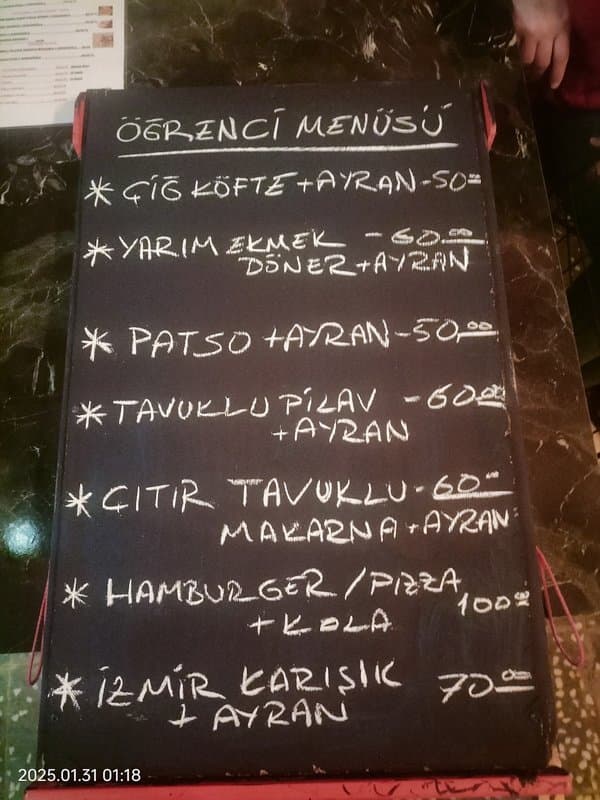 ÖĞRENCİ MENÜSÜ
* ÇİĞ KÖFTE + AYRAN - 50=
* YARIM EKMEK - 60.00
DÖNER + AYRAN
* PATSO + AYRAN - 50.00
* TAVUKLU PİLAV - 60.00
+ AYRAN
* ÇITIR TAVUKLU - 60.00
MAKARNA + AYRAN
* HAMBURGER / PİZZA
100.00
+ KOLA
* İZMİR KARIŞIK 70.00
+ AYRAN
2025.01.31 01:18